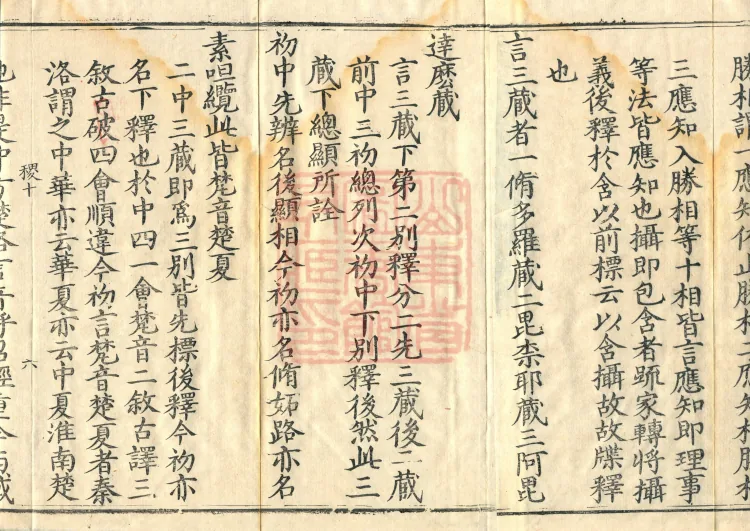 勝相謂一應知依止勝相二應知相勝相
三應知入勝相等十相皆言應知即理事
等法皆應知也攝即包含者䟽家轉將攝
義後釋於含以前標云以含攝故故牒釋
也
言三藏者一脩多羅藏二毘柰耶藏三阿毘
達磨藏
言三藏下第二別釋分二先三藏後二藏
前中三初總列次初中下別釋後然此三
藏下總顯所詮
初中先辨名後顯相今初亦名脩妬路亦名
素呾纜此皆梵音楚夏
二中三藏即爲三別皆先標後釋今初亦
名下釋也於中四一會梵音二敘古譯三
敘古破四會順違今初言梵音楚夏者秦
洛謂之中華亦云華夏亦云中夏淮南楚
稷十 六